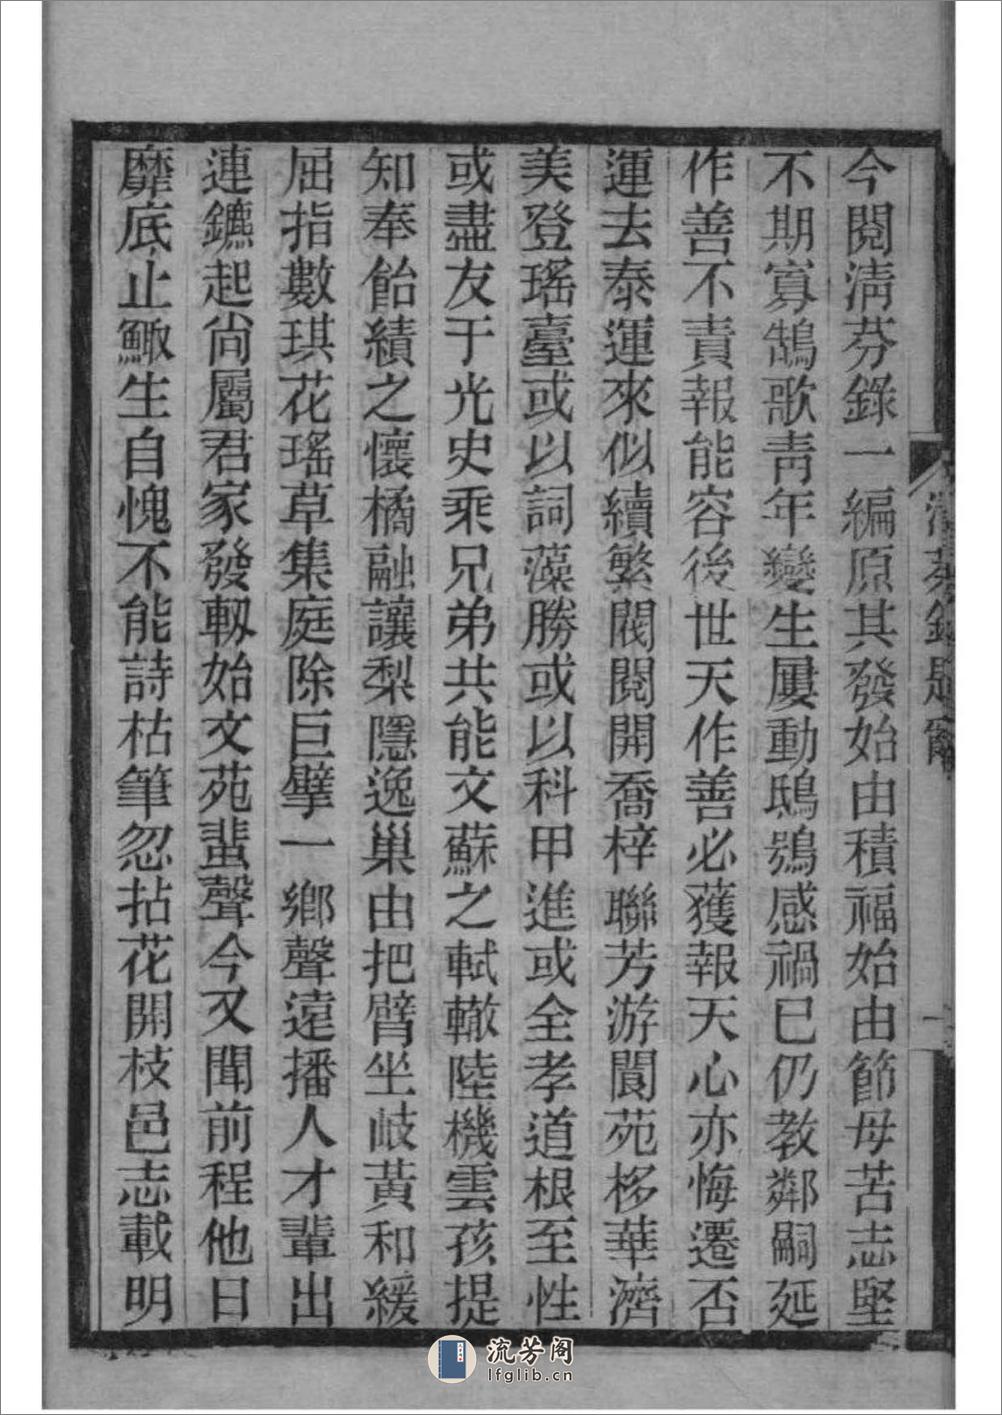 今閱淸芬錄一編原其發始由積福始由節母苦志堅
不期寡鵠歌靑年變生屢動鴟鴞感禍已仍教鄰嗣延
作善不責報能容後世天作善必獲報天心亦悔遷否
運去泰運來似續繁閥閱開喬梓聯芳游閬苑栘華濟
美登瑤臺或以詞藻勝或以科甲進或全孝道根至性
或盡友于光史乘兄弟共能文蘇之軾轍陸機雲孩提
知奉飴績之懷橘融讓梨隱逸巢由把臂坐岐黃和緩
屈指數琪花瑤草集庭除巨擘一鄉聲遠播人才輩出
連鑣起尙屬君家發軔始文苑蜚聲今又聞前程他日
靡底止鯫生自愧不能詩枯筆忽拈花開枝邑志載明
淸芬錄題
一
流芳阁
lfglib.cn